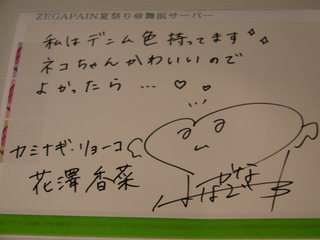 ZEGAPAIN夏祭り@舞浜サーバー
私はデニム色持ってます
ネコちゃんかわいいので
よかったら…♡♡
カミナギ・リョーコ
花澤香菜